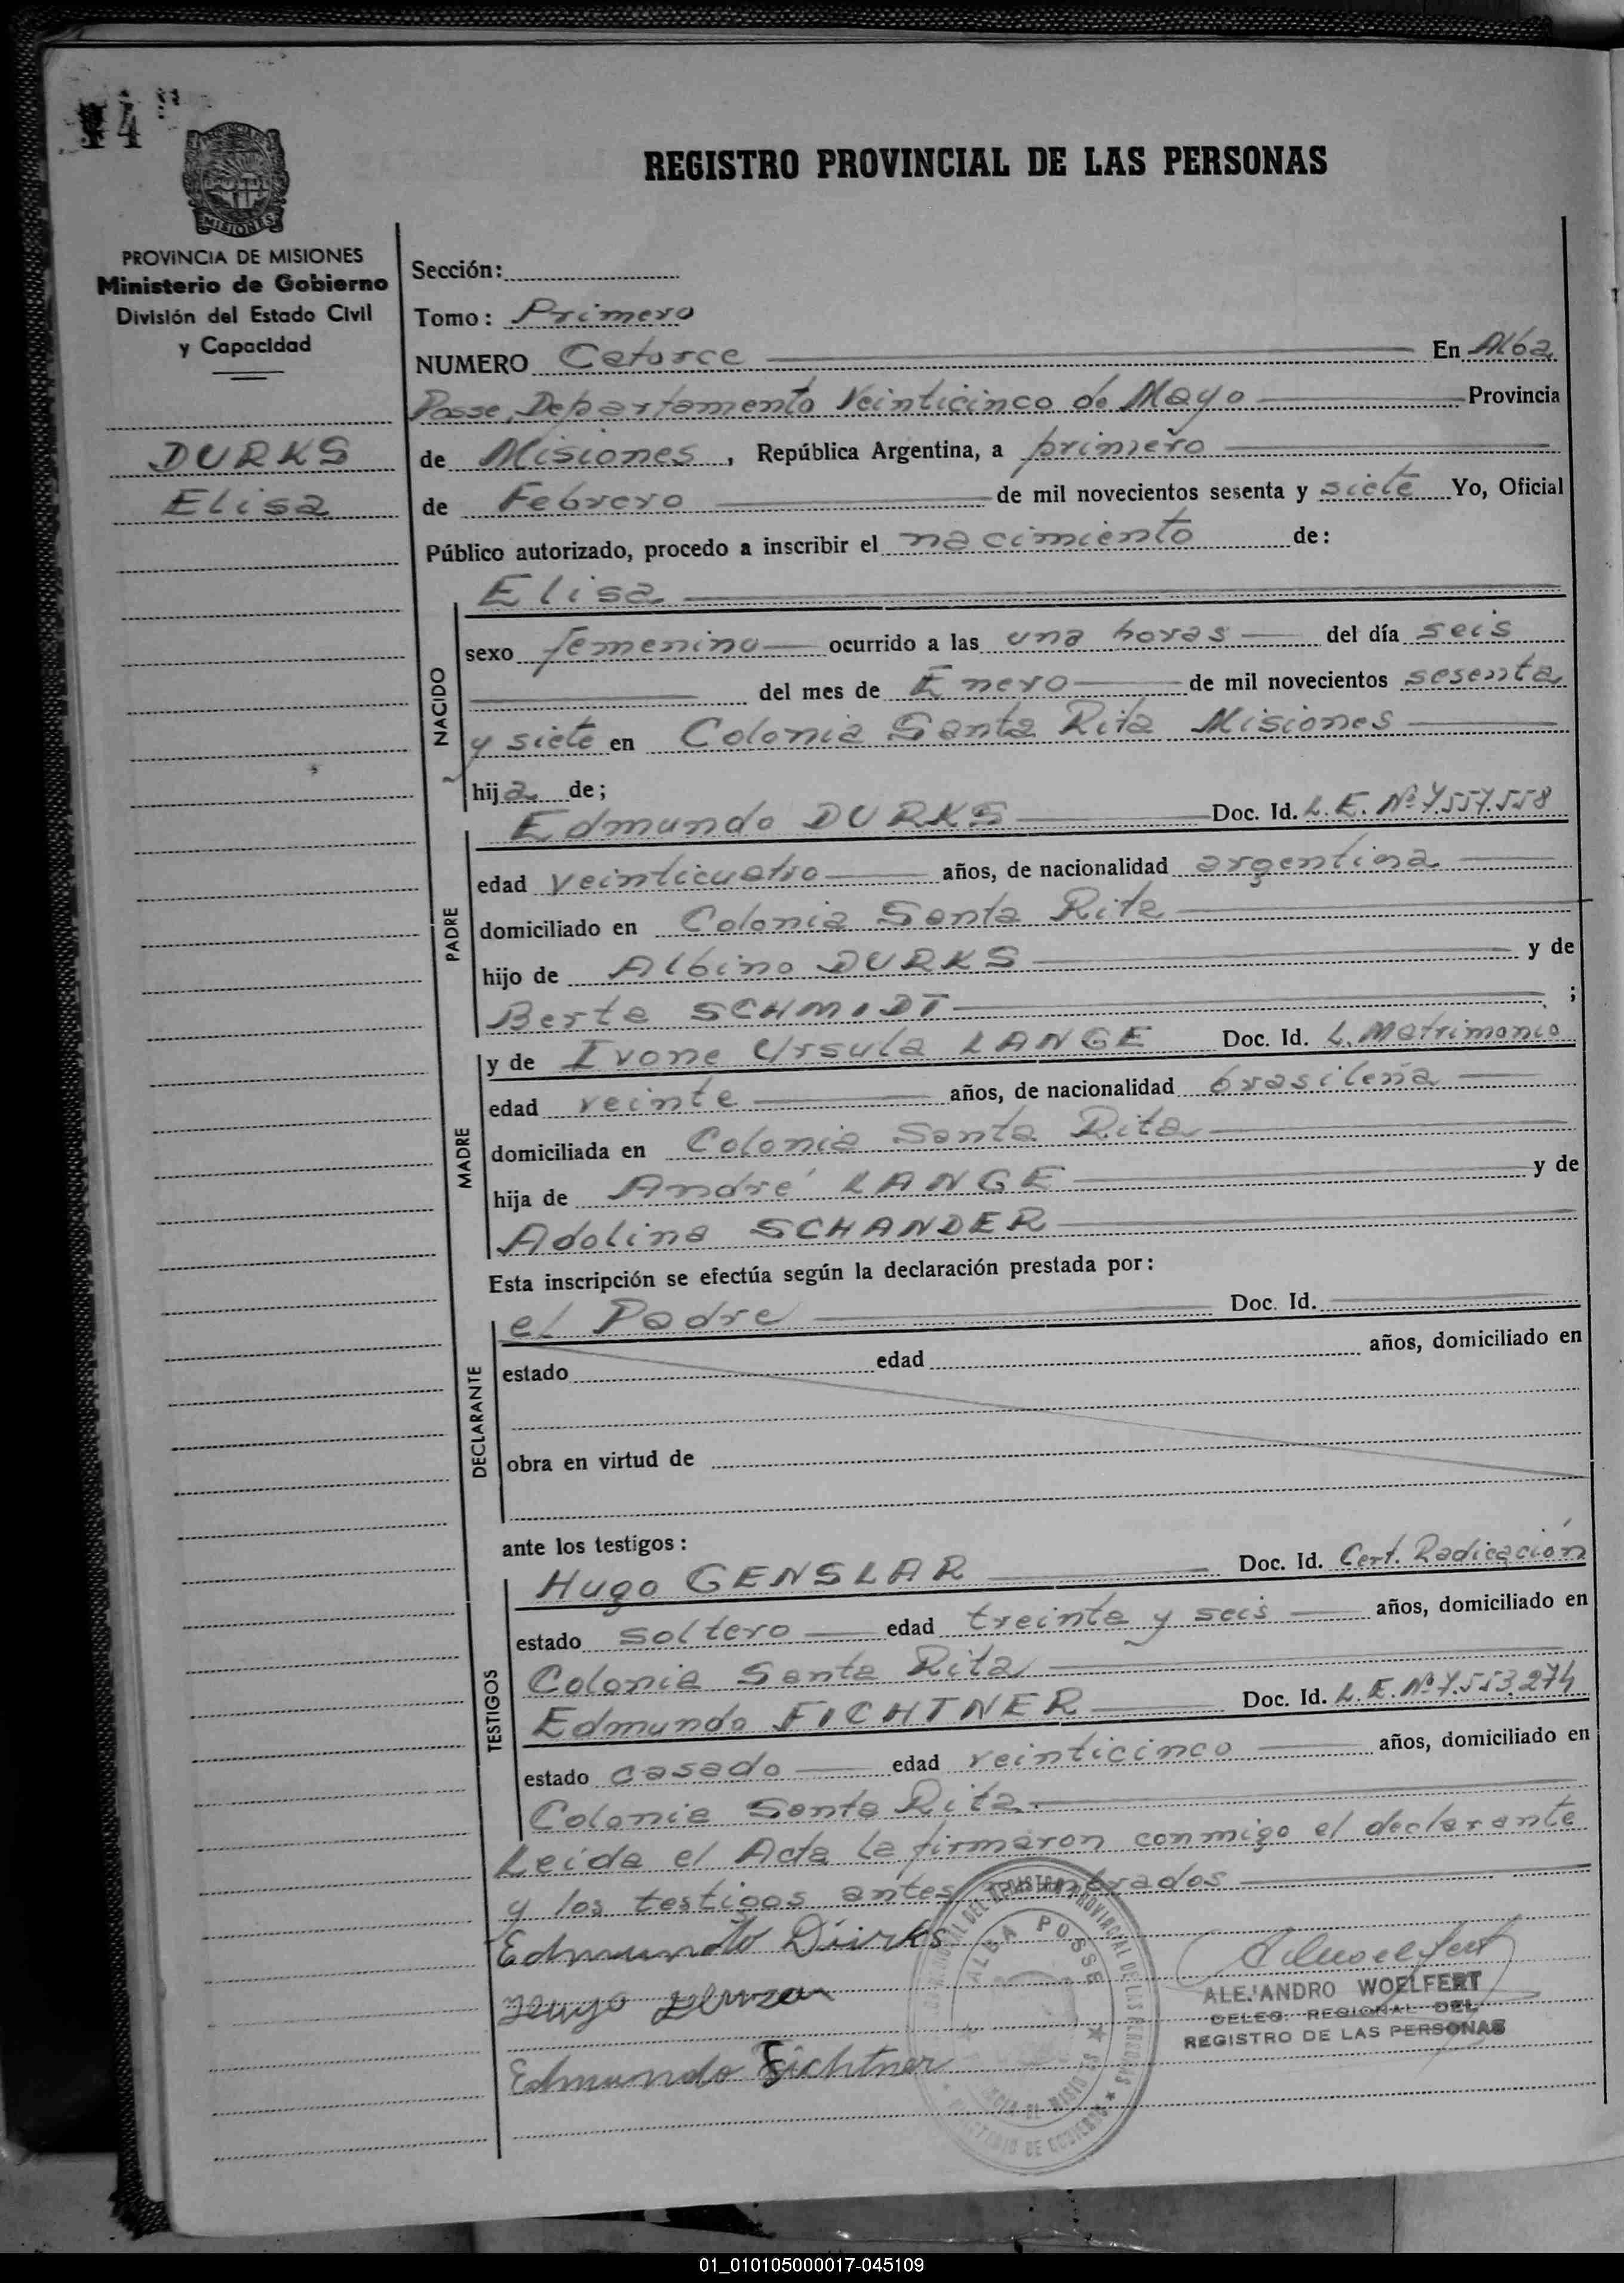 14
REGISTRO PROVINCIAL DE LAS PERSONAS
MISIONES
PROVINCIA DE MISIONES
Ministerio de Gobierno
División del Estado Civil
y Capacidad
DURKS
Elisa
Sección:
Tomo: Primero
NUMERO Catorce En Alba
Posse, Departamento Veinticinco de Mayo Provincia
de Misiones, República Argentina, a primero
de Febrero de mil novecientos sesenta y siete Yo, Oficial
Público autorizado, procedo a inscribir el nacimiento de:
NACIDO
Elisa
sexo femenino ocurrido a las una horas del día seis
del mes de Enero de mil novecientos sesenta
y siete en Colonia Santa Rita Misiones
hija de;
PADRE
Edmundo DURKS Doc. Id. L. E. Nº 7.557.558
edad veinticuatro años, de nacionalidad argentina
domiciliado en Colonia Santa Rita
hijo de Albino DURKS y de
Berta SCHMIDT ;
MADRE
y de Ivone Ursula LANGE Doc. Id. L. Matrimonio
edad veinte años, de nacionalidad brasileña
domiciliada en Colonia Santa Rita
hija de André LANGE y de
Adolina SCHANDER
Esta inscripción se efectúa según la declaración prestada por:
DECLARANTE
el Padre Doc. Id.
estado edad años, domiciliado en
obra en virtud de
ante los testigos:
TESTIGOS
Hugo GENSLAR Doc. Id. Cert. Radicación
estado soltero edad treinta y seis años, domiciliado en
Colonia Santa Rita
Edmundo FICHTNER Doc. Id. L. E. Nº 7.553.274
estado casado edad veinticinco años, domiciliado en
Colonia Santa Rita
Leída el Acta la firmaron conmigo el declarante
y los testigos antes nombrados
Edmundo Dürks
Edmundo Fichtner
ALBA POSSE
ALEJANDRO WOELFERT
DELEG. REGIONAL DEL
REGISTRO DE LAS PERSONAS
01_010105000017-045109